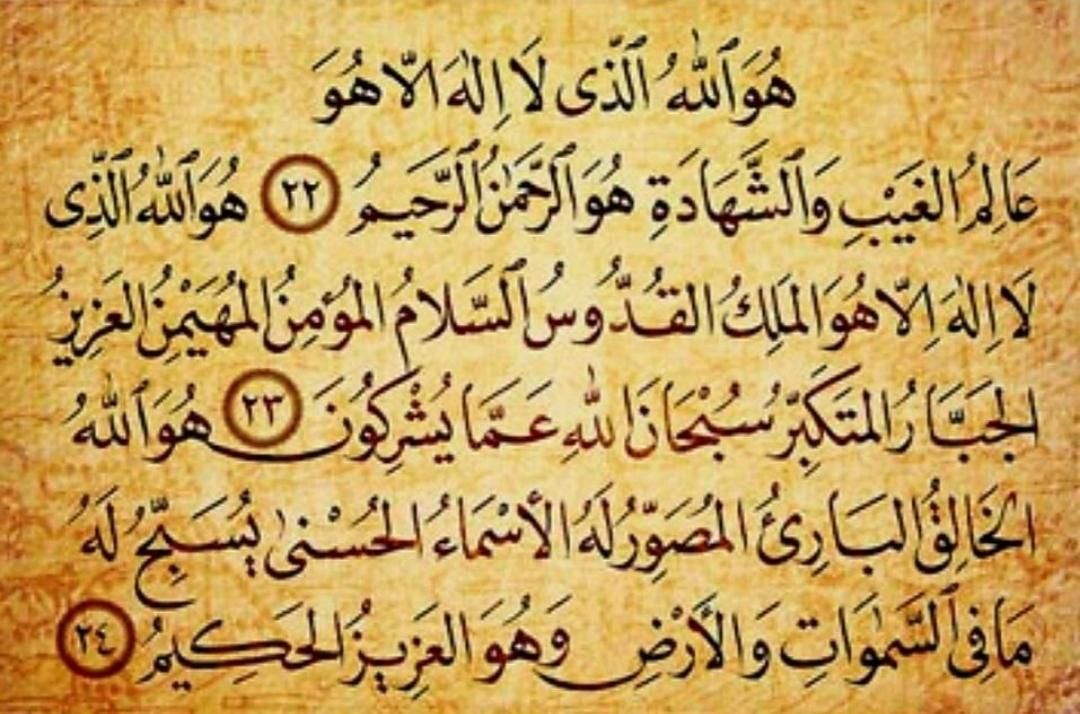 هُوَ ٱللّٰهُ ٱلَّذِى لَا اِلٰهَ اِلَّا هُوَ
عَالِمُ الغَيْبِ وَٱلشَّهَادَةِ هُوَ ٱلرَّحْمٰنُ ٱلرَّحِيمُ ٢٢ هُوَ ٱللّٰهُ ٱلَّذِى
لَا اِلٰهَ اِلَّا هُوَ المَلِكُ القُدُّوسُ ٱلسَّلَامُ المُؤمِنُ المُهَيْمِنُ العَزِيزُ
الجَبَّارُ المُتَكَبِّرُ سُبْحَانَ اللّٰهِ عَمَّا يُشْرِكُونَ ٢٣ هُوَ ٱللّٰهُ
الخَالِقُ البَارِئُ المُصَوِّرُ لَهُ الأَسْمَاءُ الحُسْنىٰ يُسَبِّحُ لَهُ
مَا فِى ٱلسَّمٰوَاتِ وَالأَرْضِ وَهُوَ العَزِيزُ الحَكِيمُ ٢٤